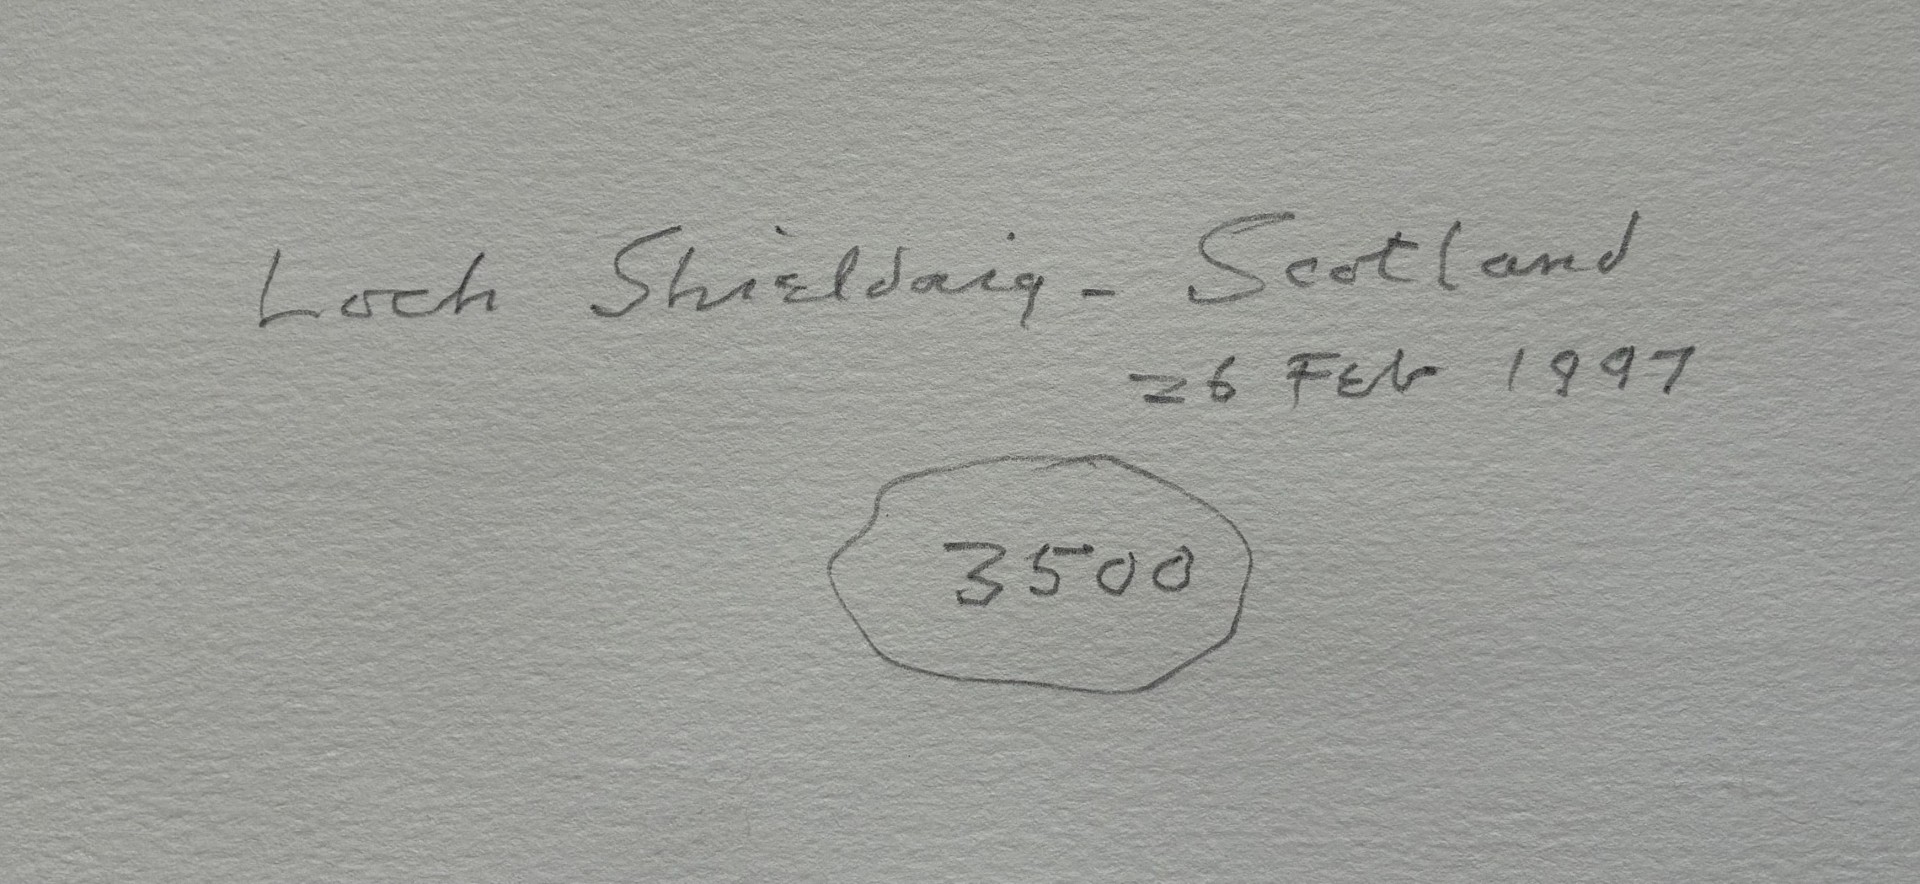 Loch Shieldaig - Scotland
26 Feb 1997
3500